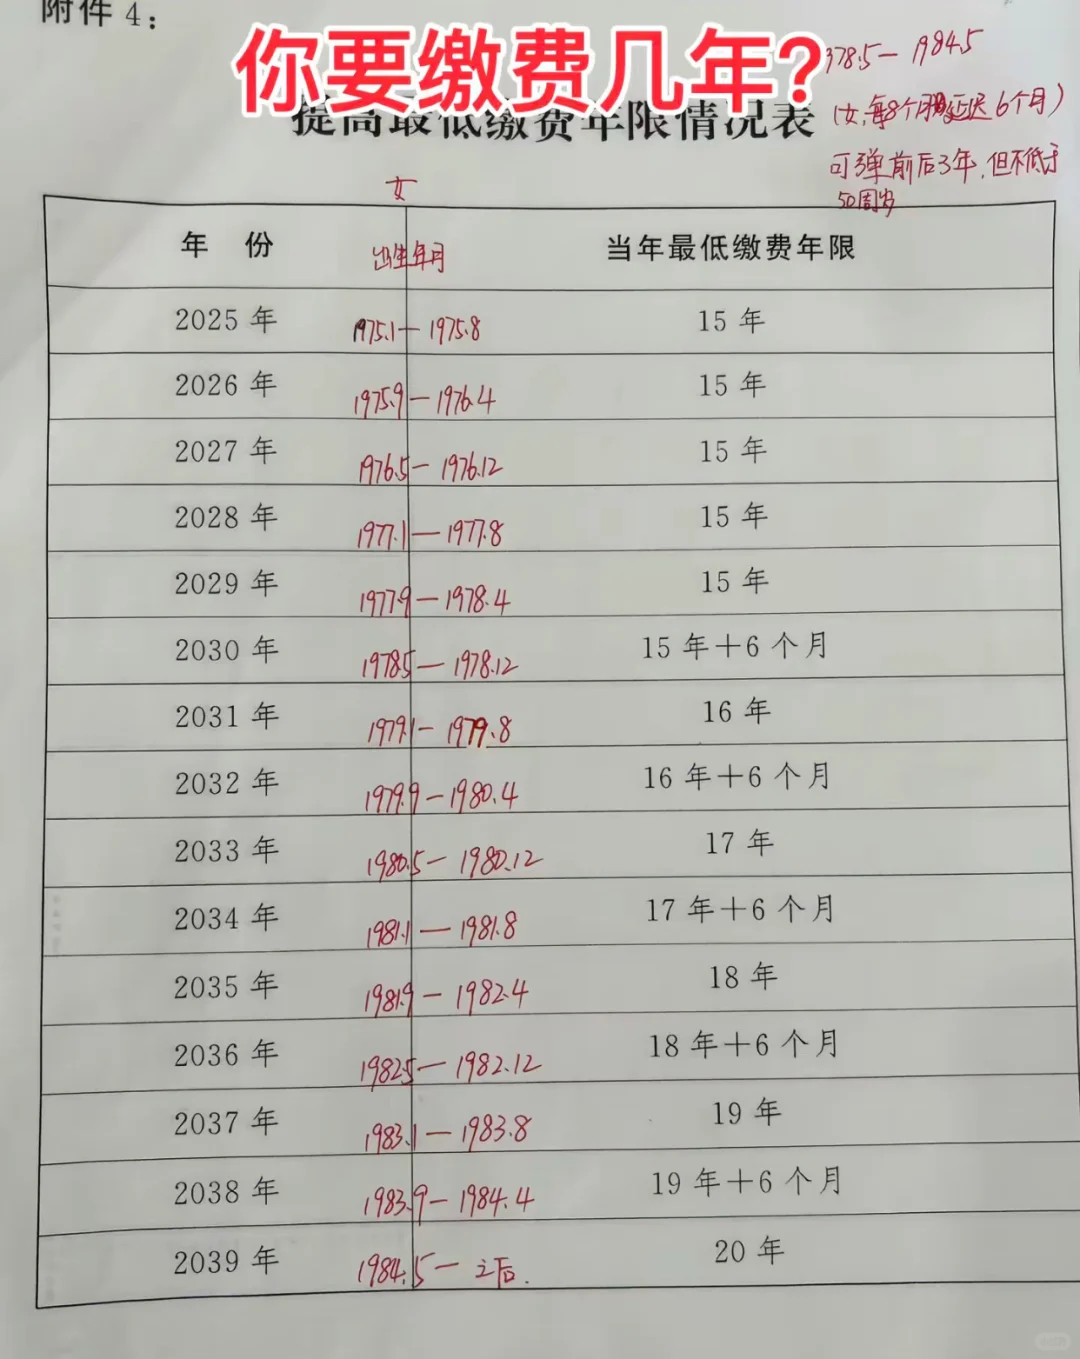 附件 4：
你要缴费几年?
提高最低缴费年限情况表
1378.5— 1984.5
(女,每8个月延迟6个月)
可弹前后3年,但不低于
50周岁
女
年 份 出生年月 当年最低缴费年限
2025 年 1975.1— 1975.8 15 年
2026 年 1975.9—1976.4 15 年
2027 年 1976.5— 1976.12 15 年
2028 年 1977.1—1977.8 15 年
2029 年 1977.9—1978.4 15 年
2030 年 1978.5— 1978.12 15 年+6 个月
2031 年 1979.1— 1979.8 16 年
2032 年 1979.9—1980.4 16 年+6 个月
2033 年 1980.5— 1980.12 17 年
2034 年 1981.1— 1981.8 17 年+6 个月
2035 年 1981.9— 1982.4 18 年
2036 年 1982.5— 1982.12 18 年+6 个月
2037 年 1983.1— 1983.8 19 年
2038 年 1983.9— 1984.4 19 年+6 个月
2039 年 1984.5— 之后. 20 年